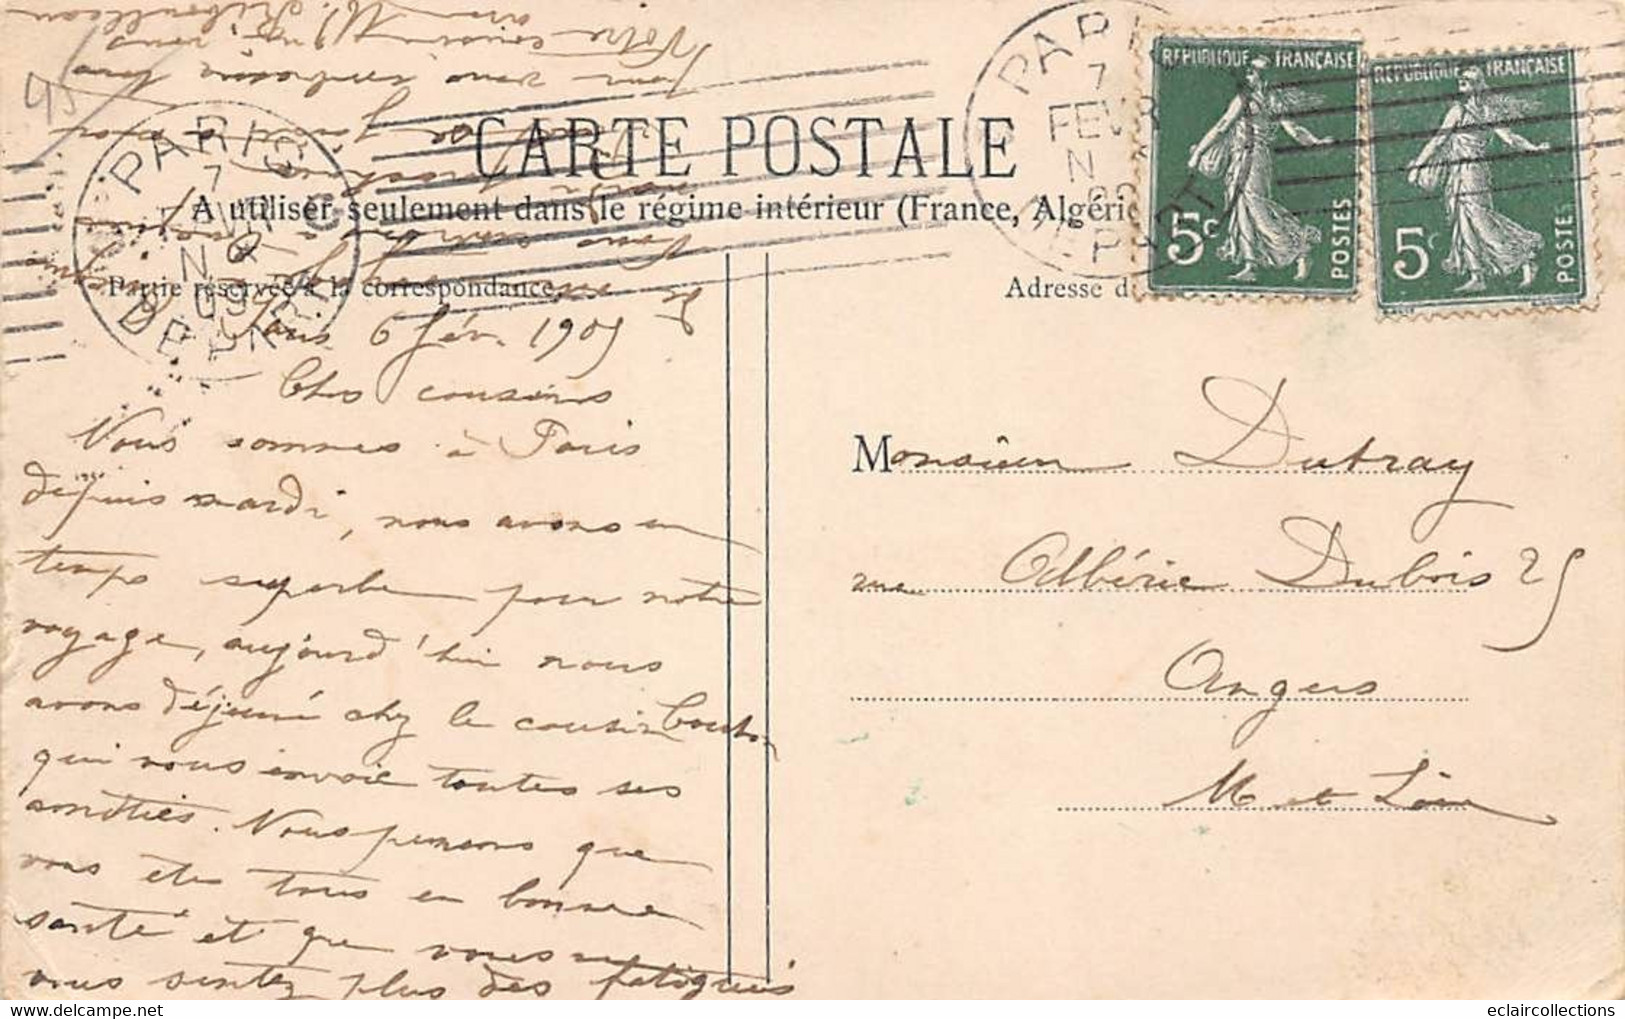 CARTE POSTALE
A utiliser seulement dans le régime intérieur (France, Algérie
Partie réservée à la correspondance.
Adresse d
RÉPUBLIQUE FRANÇAISE
5c
POSTES
RÉPUBLIQUE FRANÇAISE
5c
POSTES
PARIS
7
FEVR
09
DEPART
PARIS
7
FEVR
DEPART
Paris 6 fév. 1909
Chers cousins
Nous sommes à Paris
depuis mardi, nous avons un
temps superbe pour notre
voyage, aujourd'hui nous
avons déjeuné chez le cousin Bouton
qui vous envoie toutes ses
amitiés. Nous pensons que
vous êtes tous en bonne
santé et que vous ne
vous sentez plus des fatigués
pour vous embrasser tous
Votre cousin qui vous
Monsieur Dutray
rue Albéric Dubois 25
Angers
M et Loire
eclaircollections